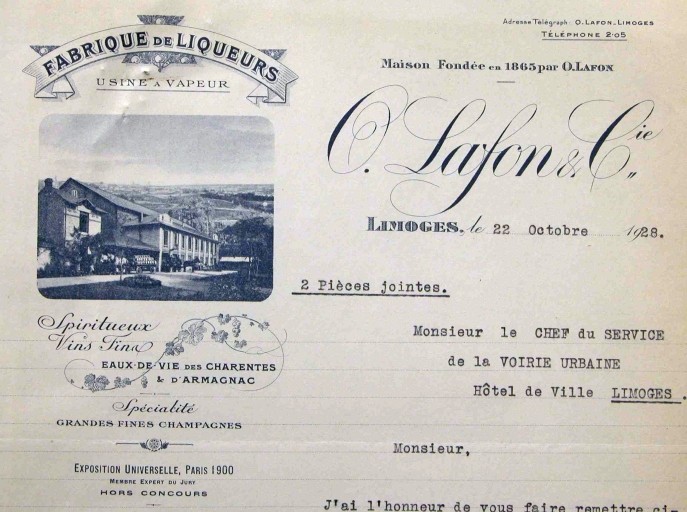 FABRIQUE DE LIQUEURS
USINE A VAPEUR
Adresse Télégraph: O. LAFON_LIMOGES
TÉLÉPHONE 2.05
Maison Fondée en 1865 par O. LAFON
O. Lafon & Cie
LIMOGES, le 22 Octobre 1928.
2 Pièces jointes.
Spiritueux
Vins Fins
EAUX-DE-VIE DES CHARENTES
& D'ARMAGNAC
Spécialité
GRANDES FINES CHAMPAGNES
EXPOSITION UNIVERSELLE, PARIS 1900
MEMBRE EXPERT DU JURY
HORS CONCOURS
Monsieur le CHEF du SERVICE
de la VOIRIE URBAINE
Hôtel de Ville LIMOGES.
Monsieur,
J'ai l'honneur de vous faire remettre ci-